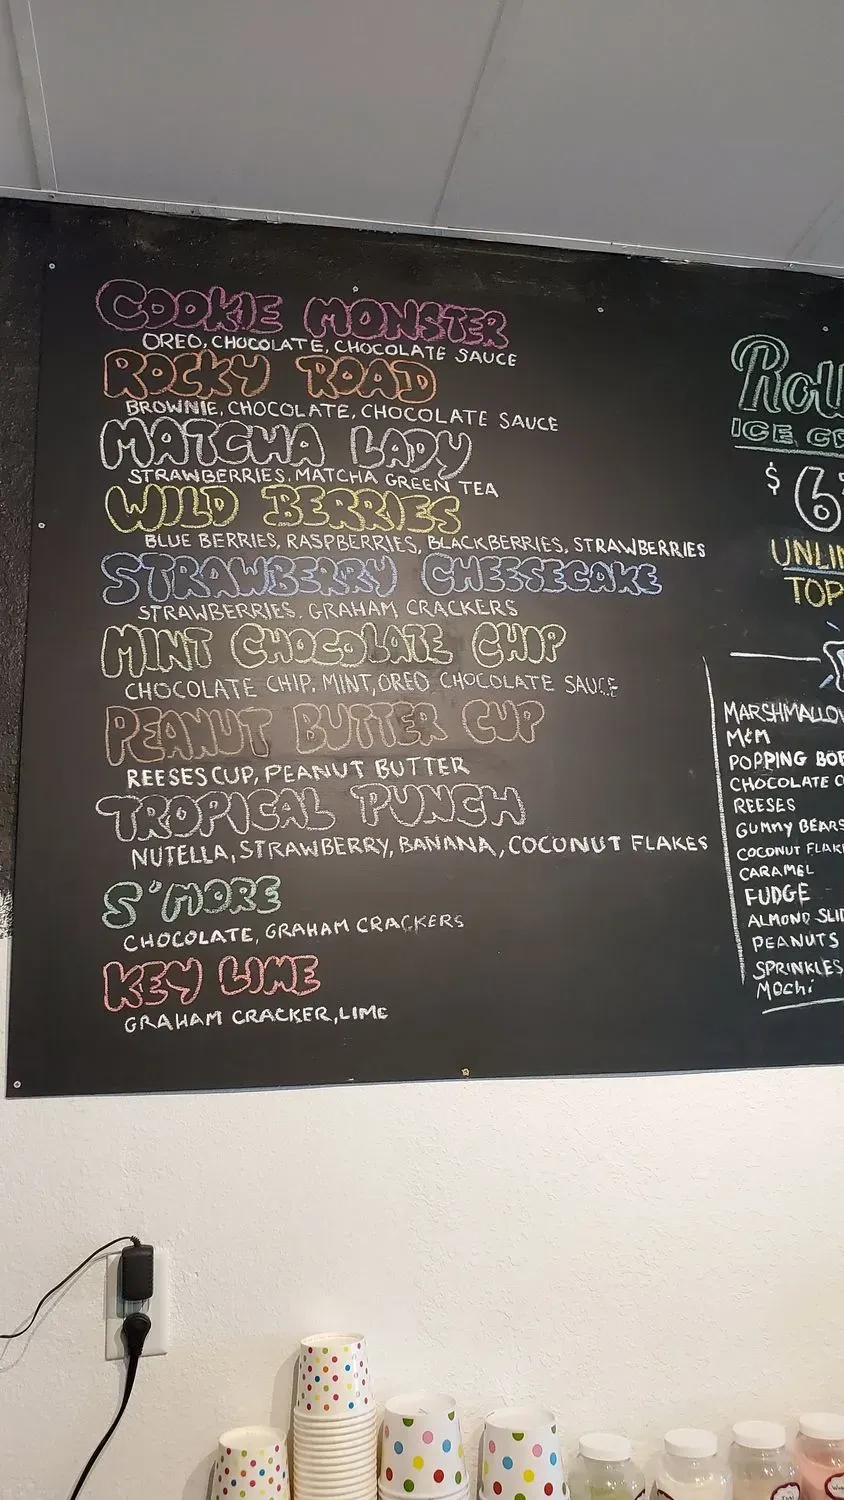 COOKIE MONSTER
OREO, CHOCOLATE, CHOCOLATE SAUCE
ROCKY ROAD
BROWNIE, CHOCOLATE, CHOCOLATE SAUCE
MATCHA LADY
STRAWBERRIES, MATCHA GREEN TEA
WILD BERRIES
BLUE BERRIES, RASPBERRIES, BLACKBERRIES, STRAWBERRIES
STRAWBERRY CHEESECAKE
STRAWBERRIES, GRAHAM CRACKERS
MINT CHOCOLATE CHIP
CHOCOLATE CHIP, MINT, OREO CHOCOLATE SAUCE
PEANUT BUTTER CUP
REESES CUP, PEANUT BUTTER
TROPICAL PUNCH
NUTELLA, STRAWBERRY, BANANA, COCONUT FLAKES
S'MORE
CHOCOLATE, GRAHAM CRACKERS
KEY LIME
GRAHAM CRACKER, LIME
ICE
$ 6
TOP
MARSHMALLOW
M&M
POPPING
CHOCOLATE
REESES
GUMMY BEARS
COCONUT
CARAMEL
FUDGE
ALMOND
PEANUTS
SPRINKLES
MOCHI